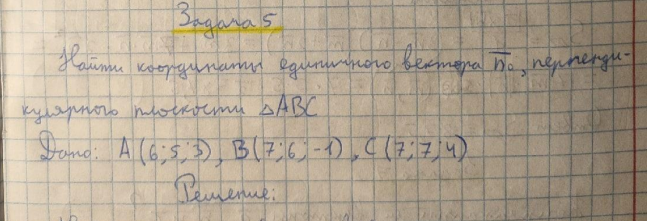 Задача 5
Найти координаты единичного вектора n̅₀, перпенди-
кулярного плоскости △ABC
Дано: A(6;5;3), B(7;6;-1), C(7;7;4)
Решение: